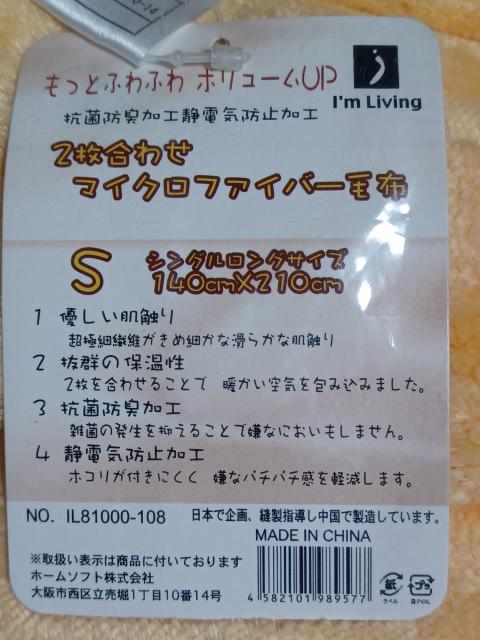 もっとふわふわ ボリュームUP
I'm Living
抗菌防臭加工静電気防止加工
2枚合わせ
マイクロファイバー毛布
S シングルロングサイズ
140cmX210cm
1 優しい肌触り
超極細繊維がきめ細かな滑らかな肌触り
2 抜群の保温性
2枚を合わせることで 暖かい空気を包み込みました。
3 抗菌防臭加工
雑菌の発生を抑えることで嫌なにおいもしません。
4 静電気防止加工
ホコリが付きにくく 嫌なパチパチ感を軽減します。
NO. IL81000-108 日本で企画、縫製指導し中国で製造しています。
MADE IN CHINA
※取扱い表示は商品に付いております
ホームソフト株式会社
大阪市西区立売堀1丁目10番14号
4 582101 989577
紙
ラベル